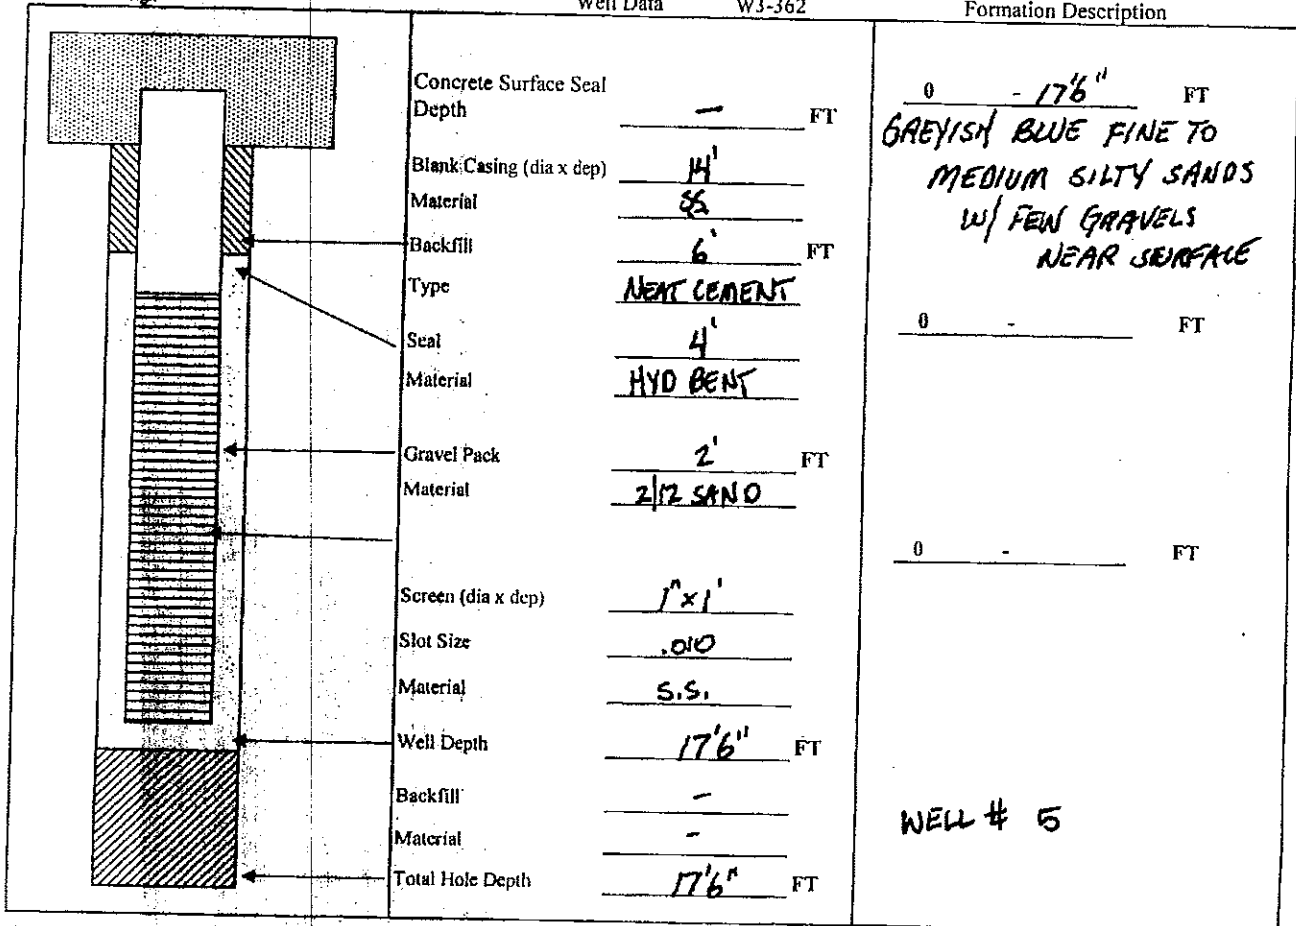 Well Data W3-362 Formation Description
Concrete Surface Seal
Depth — FT
Blank Casing (dia x dep) 14'
Material SS
Backfill 6' FT
Type NEAT CEMENT
Seal 4'
Material HYD BENT
Gravel Pack 2' FT
Material 2/12 SAND
Screen (dia x dep) 1" x 1'
Slot Size .010
Material S.S.
Well Depth 17'6" FT
Backfill -
Material -
Total Hole Depth 17'6" FT
0 - 17'6" FT
GREYISH BLUE FINE TO
MEDIUM SILTY SANDS
W/ FEW GRAVELS
NEAR SURFACE
0 - FT
0 - FT
WELL # 5